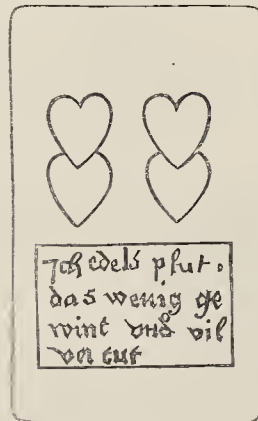 Ich edels plut.
das wenig ge
wint vnd vil
ver tut